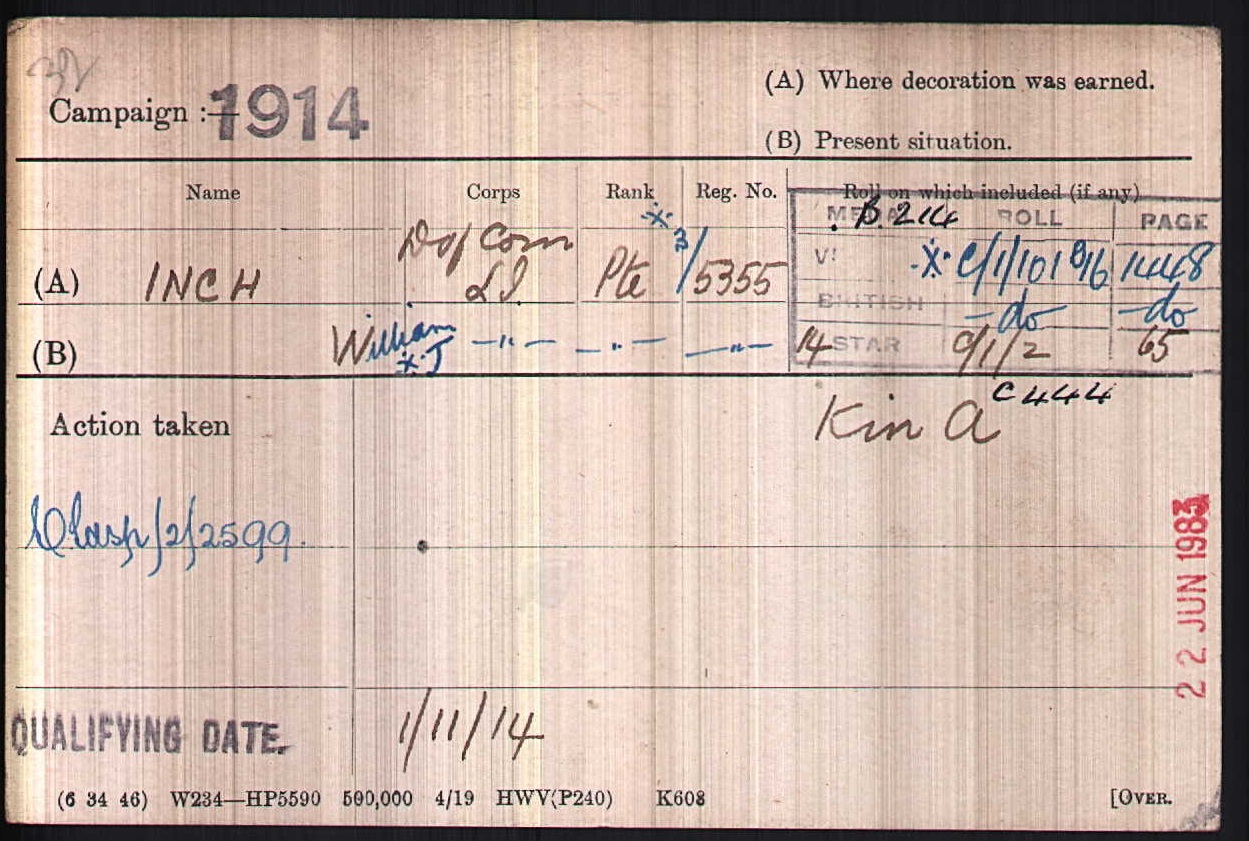 Campaign :— 1914
(A) Where decoration was earned.
(B) Present situation.
Name Corps Rank Reg. No. Roll on which included (if any)
MEDAL ROLL PAGE
B. 214
(A) INCH D of Corn L I Pte 3/5355
C/1/101 B16 1448
BRITISH -do- -do-
(B) William J —"— —"— —"—
14 STAR C/1/2 65
Action taken
Kin A C 444
Clasp/2/2599.
22 JUN 1983
QUALIFYING DATE. 1/11/14
(6 34 46) W234—HP5590 500,000 4/19 HWV(P240) K608 [OVER.